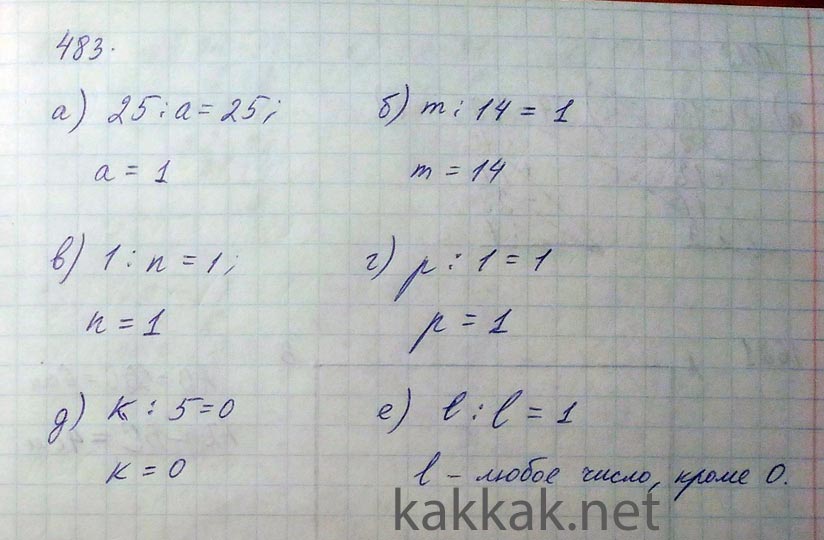 483.
а) 25 : а = 25; б) m : 14 = 1
а = 1 m = 14
в) 1 : n = 1; г) p : 1 = 1
n = 1 p = 1
д) к : 5 = 0 е) l : l = 1
к = 0 l – любое число, кроме 0.
kakkak.net